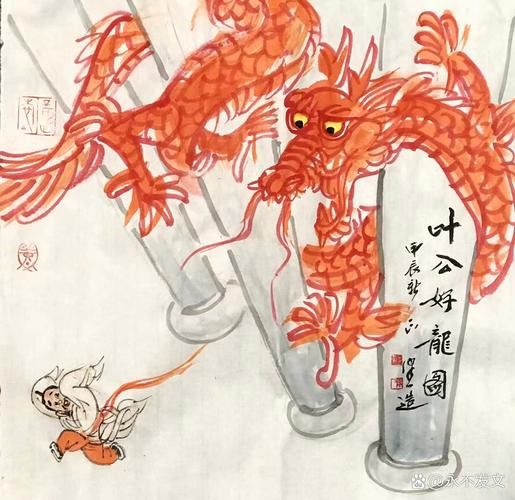 叶公好龍图
甲辰新正
造
永不发文